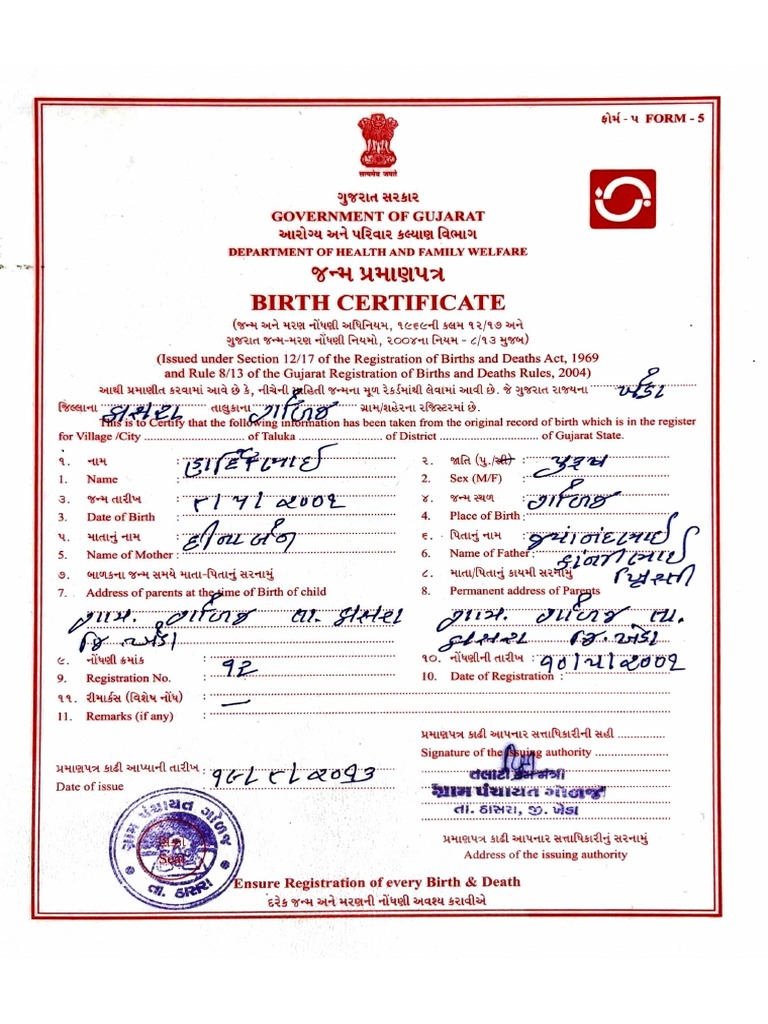 ફોર્મ - ૫ FORM - 5
सत्यमेव जयते
ગુજરાત સરકાર
GOVERNMENT OF GUJARAT
આરોગ્ય અને પરિવાર કલ્યાણ વિભાગ
DEPARTMENT OF HEALTH AND FAMILY WELFARE
જન્મ પ્રમાણપત્ર
BIRTH CERTIFICATE
(જન્મ અને મરણ નોંધણી અધિનિયમ, ૧૯૬૯ની કલમ ૧૨/૧૭ અને
ગુજરાત જન્મ-મરણ નોંધણી નિયમો, ૨૦૦૪ના નિયમ - ૮/૧૩ મુજબ)
(Issued under Section 12/17 of the Registration of Births and Deaths Act, 1969
and Rule 8/13 of the Gujarat Registration of Births and Deaths Rules, 2004)
આથી પ્રમાણીત કરવામાં આવે છે કે, નીચેની માહિતી જન્મના મૂળ રેકર્ડમાંથી લેવામાં આવી છે. જે ગુજરાત રાજ્યના ખેડા
જિલ્લાના ઠાસરા તાલુકાના ગોળજ ગ્રામ/શહેરના રજિસ્ટરમાં છે.
This is to Certify that the following information has been taken from the original record of birth which is in the register
for Village /City of Taluka of District of Gujarat State.
૧. નામ : હાર્દિકભાઈ ૨. જાતિ (પુ./સ્ત્રી) : પુરૂષ
1. Name : 2. Sex (M/F) :
૩. જન્મ તારીખ : ૯/૫/૨૦૦૧ ૪. જન્મ સ્થળ : ગોળજ
3. Date of Birth : 4. Place of Birth :
૫. માતાનું નામ : હીનાબેન ૬. પિતાનું નામ : જયાનંદભાઈ
5. Name of Mother : 6. Name of Father : કાંન્તીભાઈ
૭. બાળકના જન્મ સમયે માતા-પિતાનું સરનામું ૮. માતા/પિતાનું કાયમી સરનામું ખ્રિસ્તી
7. Address of parents at the time of Birth of child 8. Permanent address of Parents
ગામ. ગોળજ તા. ઠાસરા ગામ. ગોળજ તા.
જિ. ખેડા ઠાસરા જિ. ખેડા
૯. નોંધણી ક્રમાંક : ૧૨ ૧૦. નોંધણીની તારીખ : ૧૦/૫/૨૦૦૧
9. Registration No. : 10. Date of Registration :
૧૧. રીમાર્કસ (વિશેષ નોંધ) : —
11. Remarks (if any) :
પ્રમાણપત્ર કાઢી આપનાર સત્તાધિકારીની સહી
Signature of the issuing authority
પ્રમાણપત્ર કાઢી આપ્યાની તારીખ : ૧૬/૯/૨૦૧૩
Date of issue
તલાટી કમ મંત્રી
ગ્રામ પંચાયત ગોળજ
તા. ઠાસરા, જી. ખેડા
ગ્રામ પંચાયત ગોળજ
સિક્કો
Seal
તા. ઠાસરા
પ્રમાણપત્ર કાઢી આપનાર સત્તાધિકારીનું સરનામું
Address of the issuing authority
Ensure Registration of every Birth & Death
દરેક જન્મ અને મરણની નોંધણી અવશ્ય કરાવીએ